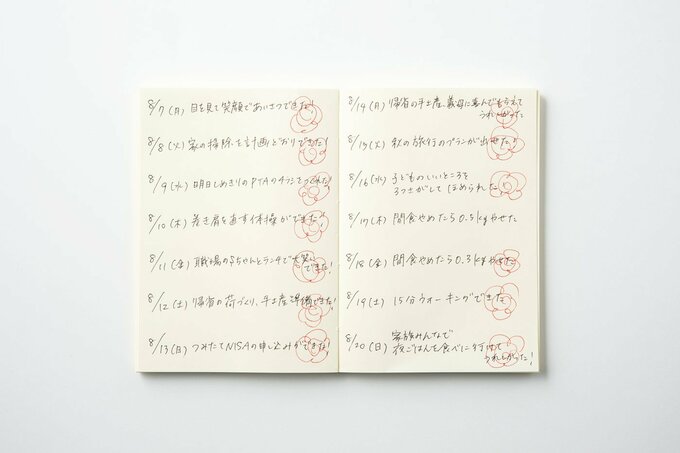 8/7(月) 目を見て笑顔であいさつできた!
8/8(火) 家の掃除を計画どおりできた!
8/9(水) 明日しめきりのPTAのチラシをつくれた!
8/10(木) 巻き肩を直す体操ができた!
8/11(金) 職場のSちゃんとランチで大笑い
できた!
8/12(土) 帰省の荷づくり、手土産準備できた!
8/13(日) つみたてNISAの申し込みができた!
8/14(月) 帰省の手土産、義母に喜んでもらえて
うれしかった
8/15(火) 秋の旅行のプランが出せた!
8/16(水) 子どものいいところを
3つさがして ほめられた
8/17(木) 間食やめたら0.5kgやせた
8/18(金) 間食やめたら0.3kgやせた
8/19(土) 15分ウォーキングできた
8/20(日) 家族みんなで
夜ごはんを食べに行けて
うれしかった!